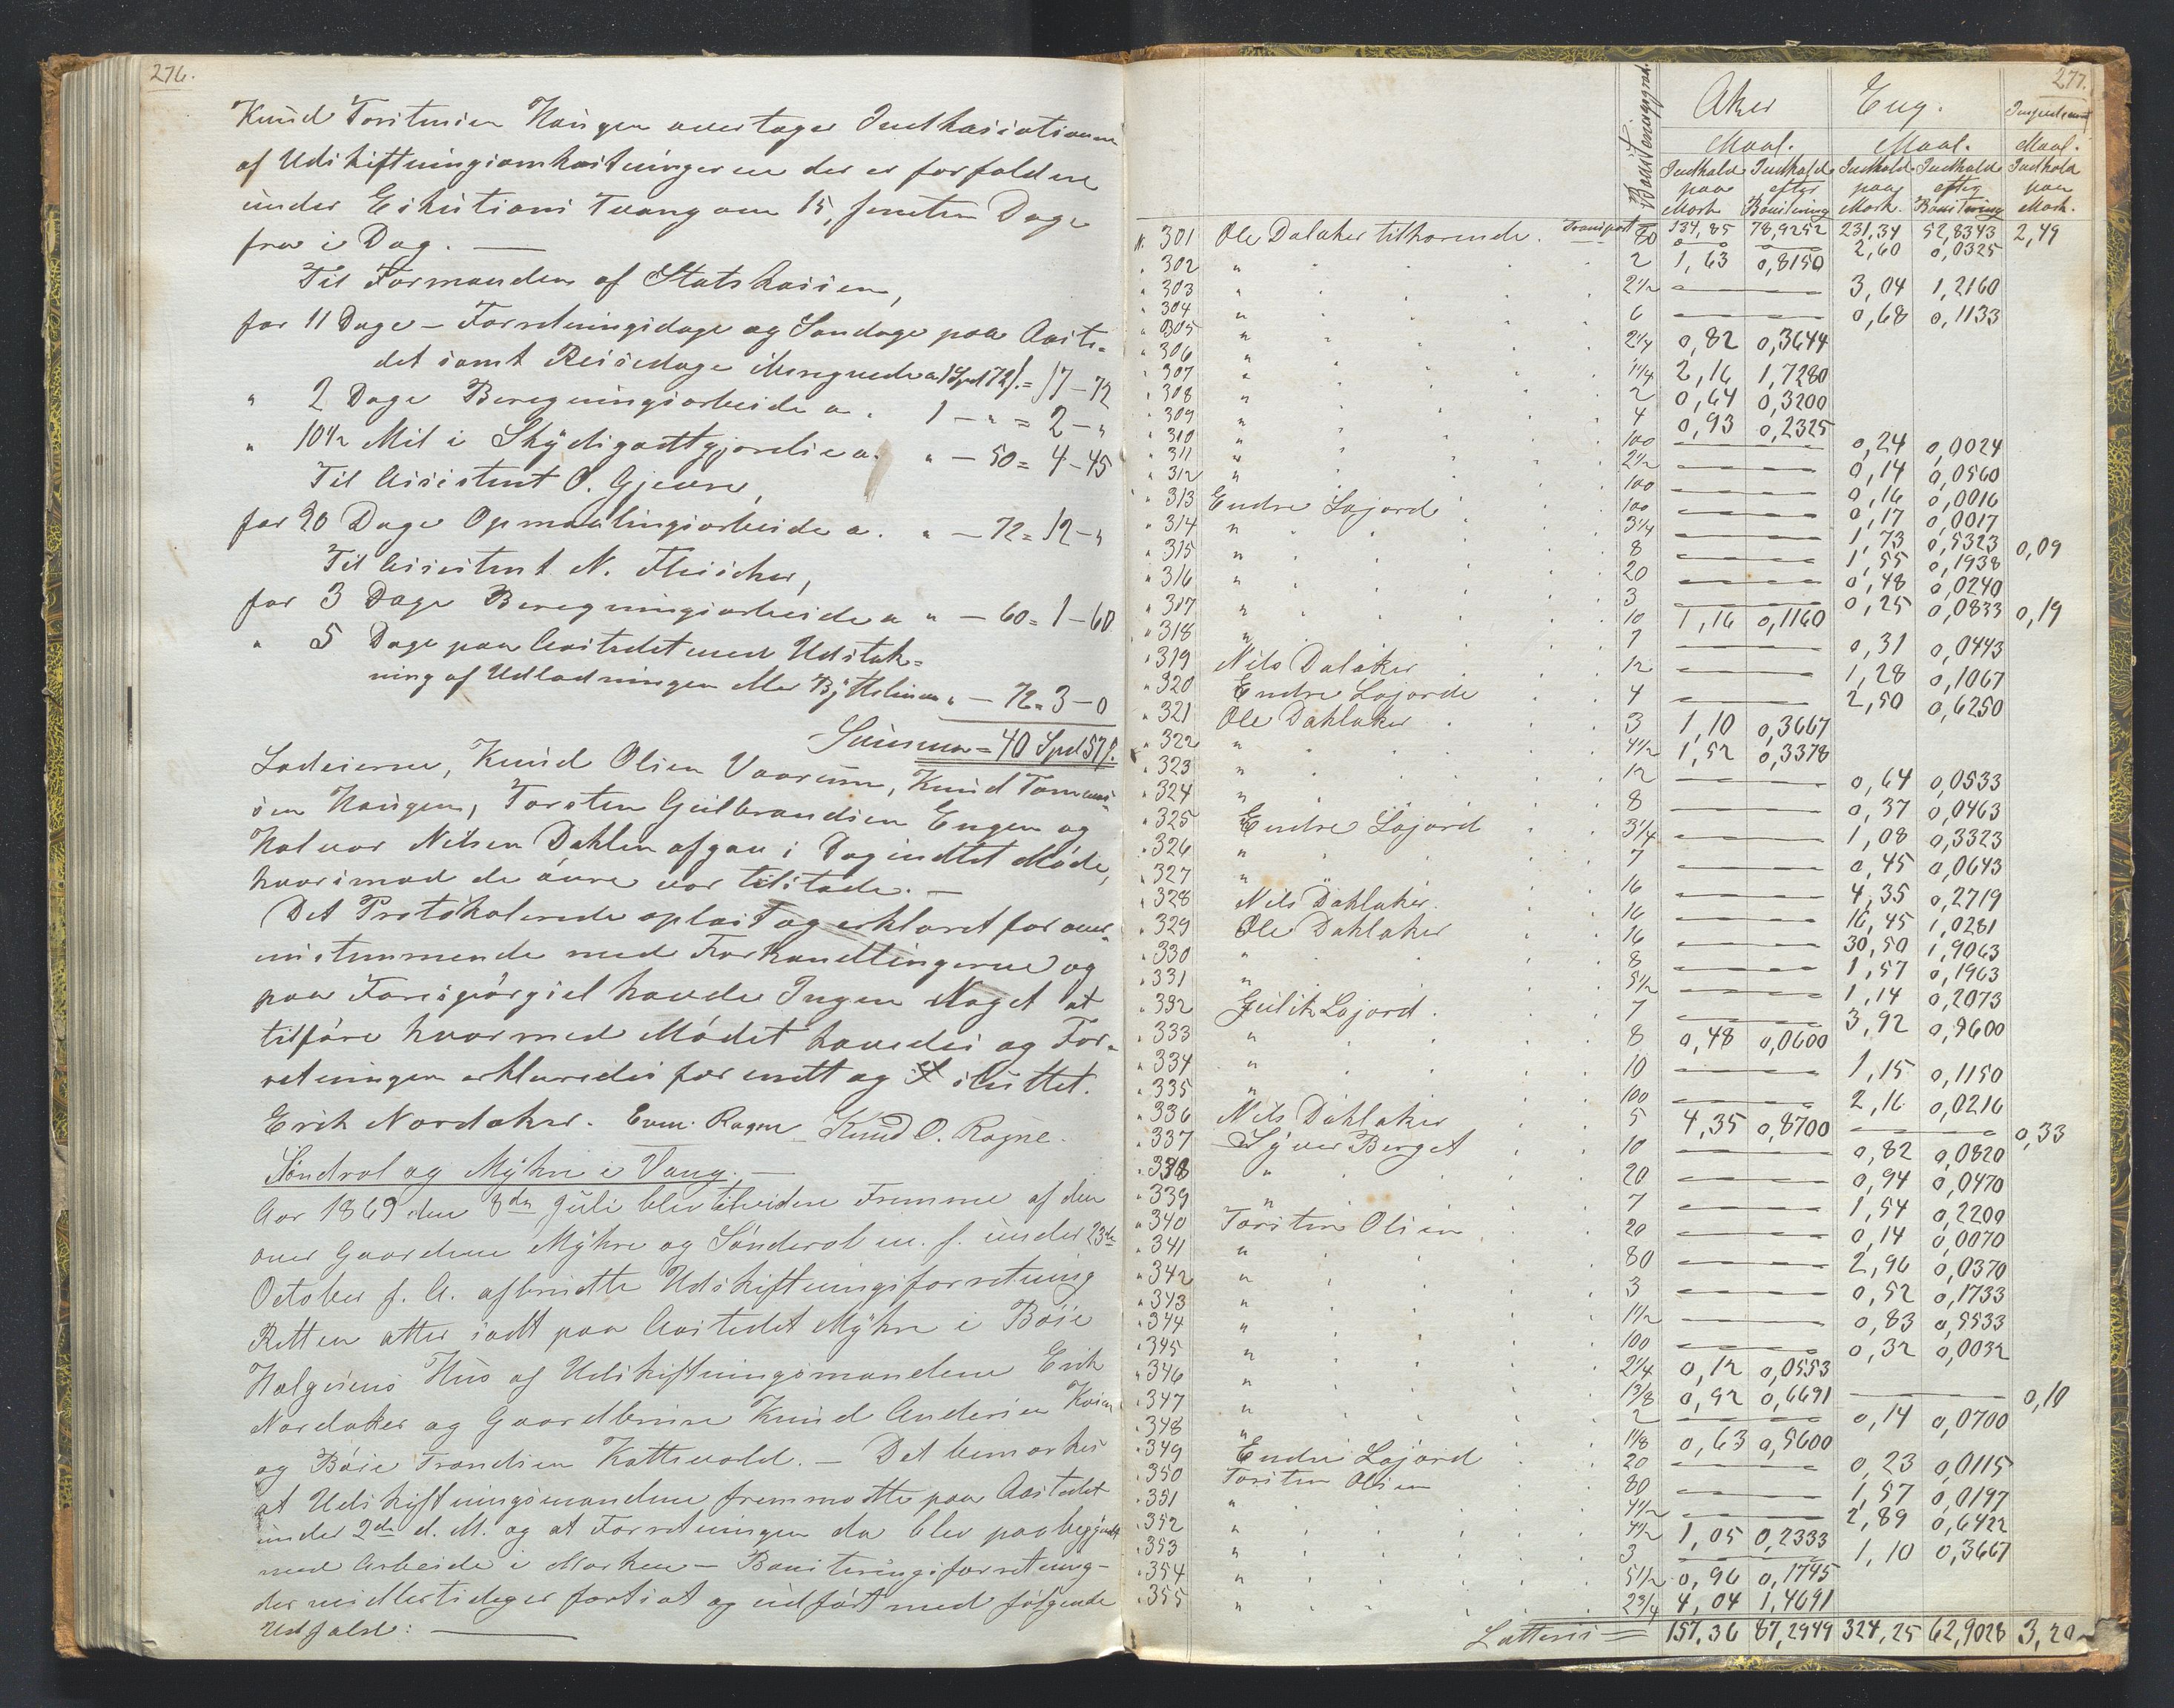 276.
Knud Torstensen Haugen overtager Indkassationen
af Udskiftningsomkostningerne der er forfaldne
under Exekutions Tvang om 15, femten Dage
fra i Dag. —
Til Formanden af Statskassen,
for 11 Dage - Forretningsdage og Søndage paa Aaste-
det samt Reisedage iberegnede a 1 Spd 72 s. = 17 - 72
" 2 Dage Beregningsarbeide a . 1 - " = 2 - "
" 10½ Mil i Skydsgodtgjørelse a. " - 50 = 4 - 45
Til Assistent O. Gjevre,
for 20 Dage Opmaalingsarbeide a . " - 72 = 12 - "
Til Assistent N. Fleischer,
for 3 Dage Beregningsarbeide a " - 60 = 1 - 60
" 5 Dage paa Aastedet med Udstik-
ning af Udlodningen eller Byttelinier " - 72 = 3 - 0
Summa = 40 Spd 57 s.
Lodeierne, Knud Olsen Vaarum, Knud Tommes-
sen Haugen, Torsten Gulbrandsen Engen og
Halvor Nilsen Dahlen afgav i Dag indtet Møde,
hvorimod de øvre var tilstede. —
Det Protokolerede oplæst og erklæret for over-
ensstemmende med Forhandlingerne og
paa Forespørgsel havde Ingen Noget at
tilføre hvormed Mødet hævedes og For-
retningen erklæredes for endt og sluttet.
Erik Nordaker. Even Rogne Knud O. Rogne.
Søndrol og Myhre i Vang. —
Aar 1869 den 8de Juli blev til videre Fremme af den
over Gaardene Myhre og Sønderol m. f. under 23de
October f. A. afbrudte Udskiftningsforretning
Retten atter sadt paa Aastedet Myhre i Boie
Helgesens Hus af Udskiftningsmændene Erik
Nordaker og Gaardbruger Knud Andersen
og Boie Trondsen Kattevold. — Det bemærkes
at Udskiftningsmændene fremmødte paa Aastedet
under 2den d. M. og at Forretningen da blev paabegyndt
med Arbeide i Marken — Boniteringsforretning-
der imidlertid er fortsat og udført med følgende
Udfald: —
277.
Boniteringsgrad. Aker Eng. Impediment
Maal. Maal. Maal.
Indhold paa Mark. Indhold efter Bonitering Indhold paa Mark. Indhold efter Bonitering Indhold paa Mark.
Transport 134,85 78,9252 231,34 52,8343 2,49
N. 301 Ole Dalaker tilhørende. 80 — — 2,60 0,0325
" 302 " 2 1,63 0,8150
" 303 " 2½ — 3,04 1,2160
" 304 " 6 — 0,68 0,1133
" 305 " 2¼ 0,82 0,3644
" 306 " 1¼ 2,16 1,7280
" 307 " 2 0,64 0,3200
" 308 " 4 0,93 0,2325
" 309 " 100 — 0,24 0,0024
" 310 " 2½ — 0,14 0,0560
" 311 " 100 — 0,16 0,0016
" 312 " 100 — 0,17 0,0017
" 313 Endre Lojord 3¼ — 1,73 0,5323 0,09
" 314 " 8 — 1,55 0,1938
" 315 " 20 — 0,48 0,0240
" 316 " 3 — 0,25 0,0833 0,19
" 317 " 10 1,16 0,1160
" 318 " 7 — 0,31 0,0443
" 319 Nils Dalaker 12 — 1,28 0,1067
" 320 Endre Lojorde 4 — 2,50 0,6250
" 321 Ole Dahlaker 3 1,10 0,3667
" 322 " 4½ 1,52 0,3378
" 323 " 12 — 0,64 0,0533
" 324 " 8 — 0,37 0,0463
" 325 Endre Lojord 3¼ — 1,08 0,3323
" 326 " 7 — 0,45 0,0643
" 327 " 16 — 4,35 0,2719
" 328 Nils Dahlaker. 16 — 16,45 1,0281
" 329 Ole Dahlaker 16 — 30,50 1,9063
" 330 " 8 — 1,57 0,1963
" 331 " 5½ — 1,14 0,2073
" 332 Gulik Lojord. 7 — 3,92 0,5600
" 333 " 8 0,48 0,0600
" 334 " 10 — 1,15 0,1150
" 335 " 100 — 2,16 0,0216
" 336 Nils Dahlaker 5 4,35 0,8700 — 0,33
" 337 Syver Berget 10 — 0,82 0,0820
" 338 " 20 — 0,94 0,0470
" 339 " 7 — 1,54 0,2200
" 340 Torsten Olsen 20 — 0,14 0,0070
" 341 " 80 — 2,96 0,0370
" 342 " 3 — 0,52 0,1733
" 343 " 1½ — 0,83 0,5533
" 344 " 100 — 0,32 0,0032
" 345 " 2¼ 0,12 0,0553
" 346 " 1⅜ 0,92 0,6691 — 0,10
" 347 " 2 — 0,14 0,0700
" 348 " 1⅛ 0,63 0,5600
" 349 Endre Lojord 20 — 0,23 0,0115
" 350 Torsten Olsen 80 — 1,57 0,0197
" 351 " 4½ — 2,89 0,6422
" 352 " 4½ 1,05 0,2333
" 353 " 3 — 1,10 0,3667
" 354 " 5½ 0,96 0,1745
" 355 " 2¾ 4,04 1,4691
Latteris = 157,36 87,2949 324,25 62,9028 3,20